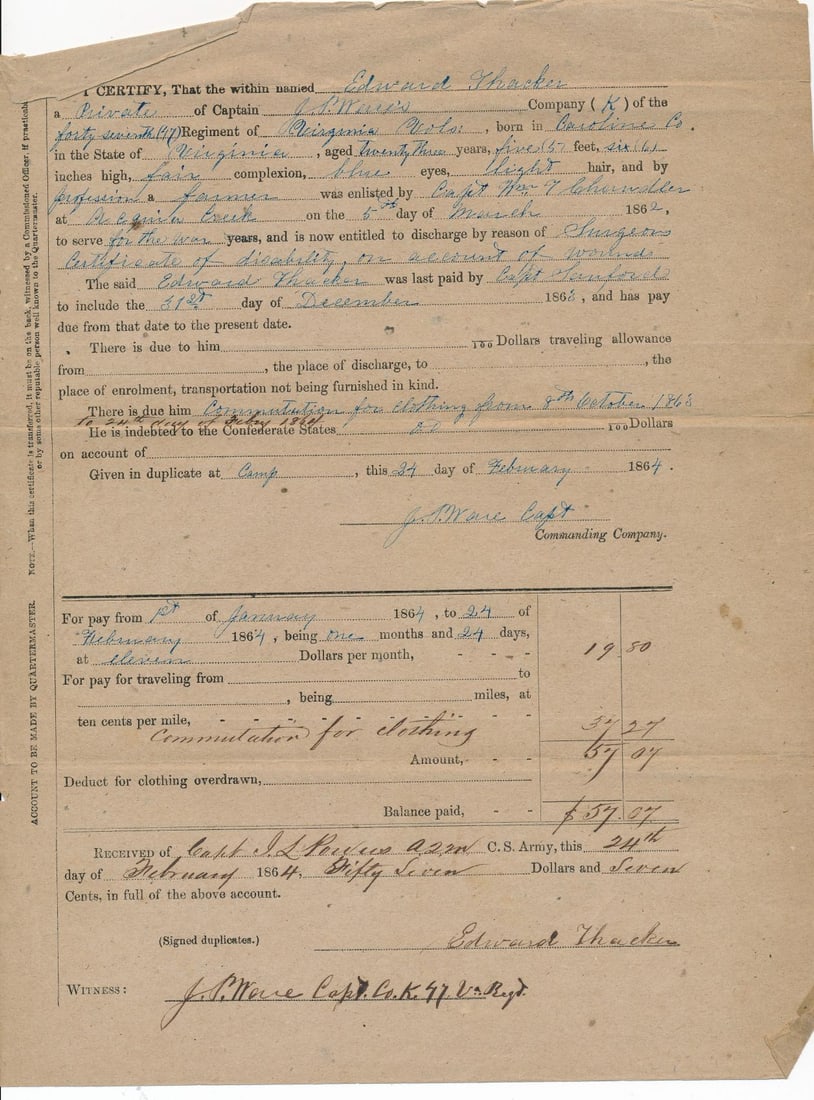 I CERTIFY, That the within named Edward Thacker
a Private of Captain J. P. Ware's Company (K) of the
forty seventh (47) Regiment of Virginia Vols: , born in Caroline Co.
in the State of Virginia , aged twenty three years, five (5) feet, six (6)
inches high, fair complexion, blue eyes, light hair, and by
profession a farmer was enlisted by Capt Wm T Chandler
at Creek on the 5th day of March 1862,
to serve for the war years, and is now entitled to discharge by reason of Surgeons
Certificate of disability, on account of wound
The said Edward Thacker was last paid by Capt Sanford
to include the 31st day of December 1863, and has pay
due from that date to the present date.
There is due to him 100 Dollars traveling allowance
from , the place of discharge, to , the
place of enrolment, transportation not being furnished in kind.
There is due him Commutation for clothing from 8th October 1863
to 24th day of Feby 1864
He is indebted to the Confederate States 100 Dollars
on account of
Given in duplicate at Camp , this 24 day of February 1864.
J. P. Ware Capt
Commanding Company.
For pay from 1st of January 1864, to 24 of
February 1864, being one months and 24 days,
at eleven Dollars per month, - - - - 19.80
For pay for traveling from to
, being miles, at
ten cents per mile, - - - - - - - - - -
Commutation for clothing 37 27
Amount, - - 57 07
Deduct for clothing overdrawn,
Balance paid, - - $57.07
RECEIVED of Capt J. L. A2QM C. S. Army, this 24th
day of February 1864, Fifty Seven Dollars and Seven
Cents, in full of the above account.
(Signed duplicates.) Edward Thacker
WITNESS: J. P. Ware Capt. Co. K. 47 Va. Regt.
ACCOUNT TO BE MADE BY QUARTERMASTER. NOTE.—When this certificate is transferred, it must be on the back, witnessed by a Commissioned Officer, if practicable,
or by some other reputable person well known to the Quartermaster.